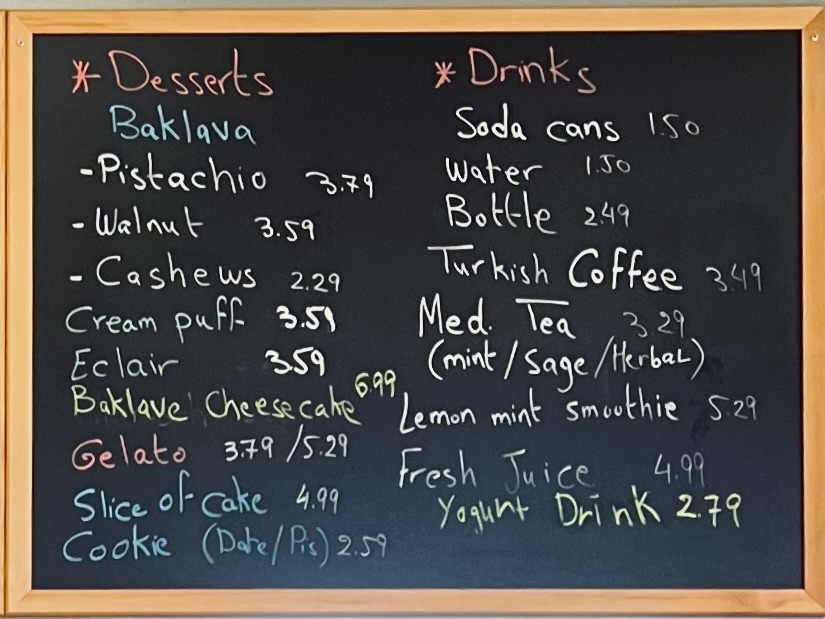 * Desserts
Baklava
- Pistachio 3.79
- Walnut 3.59
- Cashews 2.29
Cream puff 3.59
Eclair 3.59
Baklave Cheesecake 6.99
Gelato 3.79 / 5.29
Slice of cake 4.99
Cookie (Date/Pis) 2.59
* Drinks
Soda cans 1.50
Water 1.50
Bottle 2.49
Turkish Coffee 3.49
Med. Tea 3.29
(mint/Sage/Herbal)
Lemon mint smoothie 5.29
Fresh Juice 4.99
Yogurt Drink 2.79